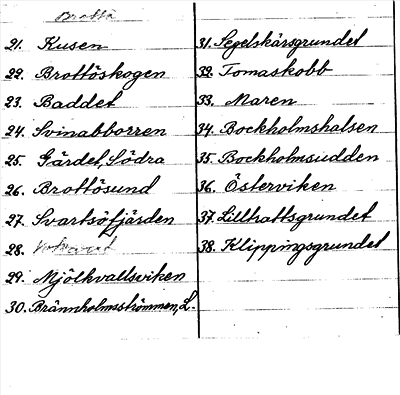 Brottö
21. Kusen
22. Brottöskogen
23. Baddet
24. Svinabborren
25. Gärdet, Södra
26. Brottösund
27. Svartsöfjärden
28.
29. Mjölkvallsviken
30. Brännholmsskommen, L.
31. Segelskärsgrundet
32. Tomaskobb
33. Maren
34. Bockholmshalsen
35. Bockholmsudden
36. Österviken
37. Lillhattsgrundet
38. Klippingsgrundet